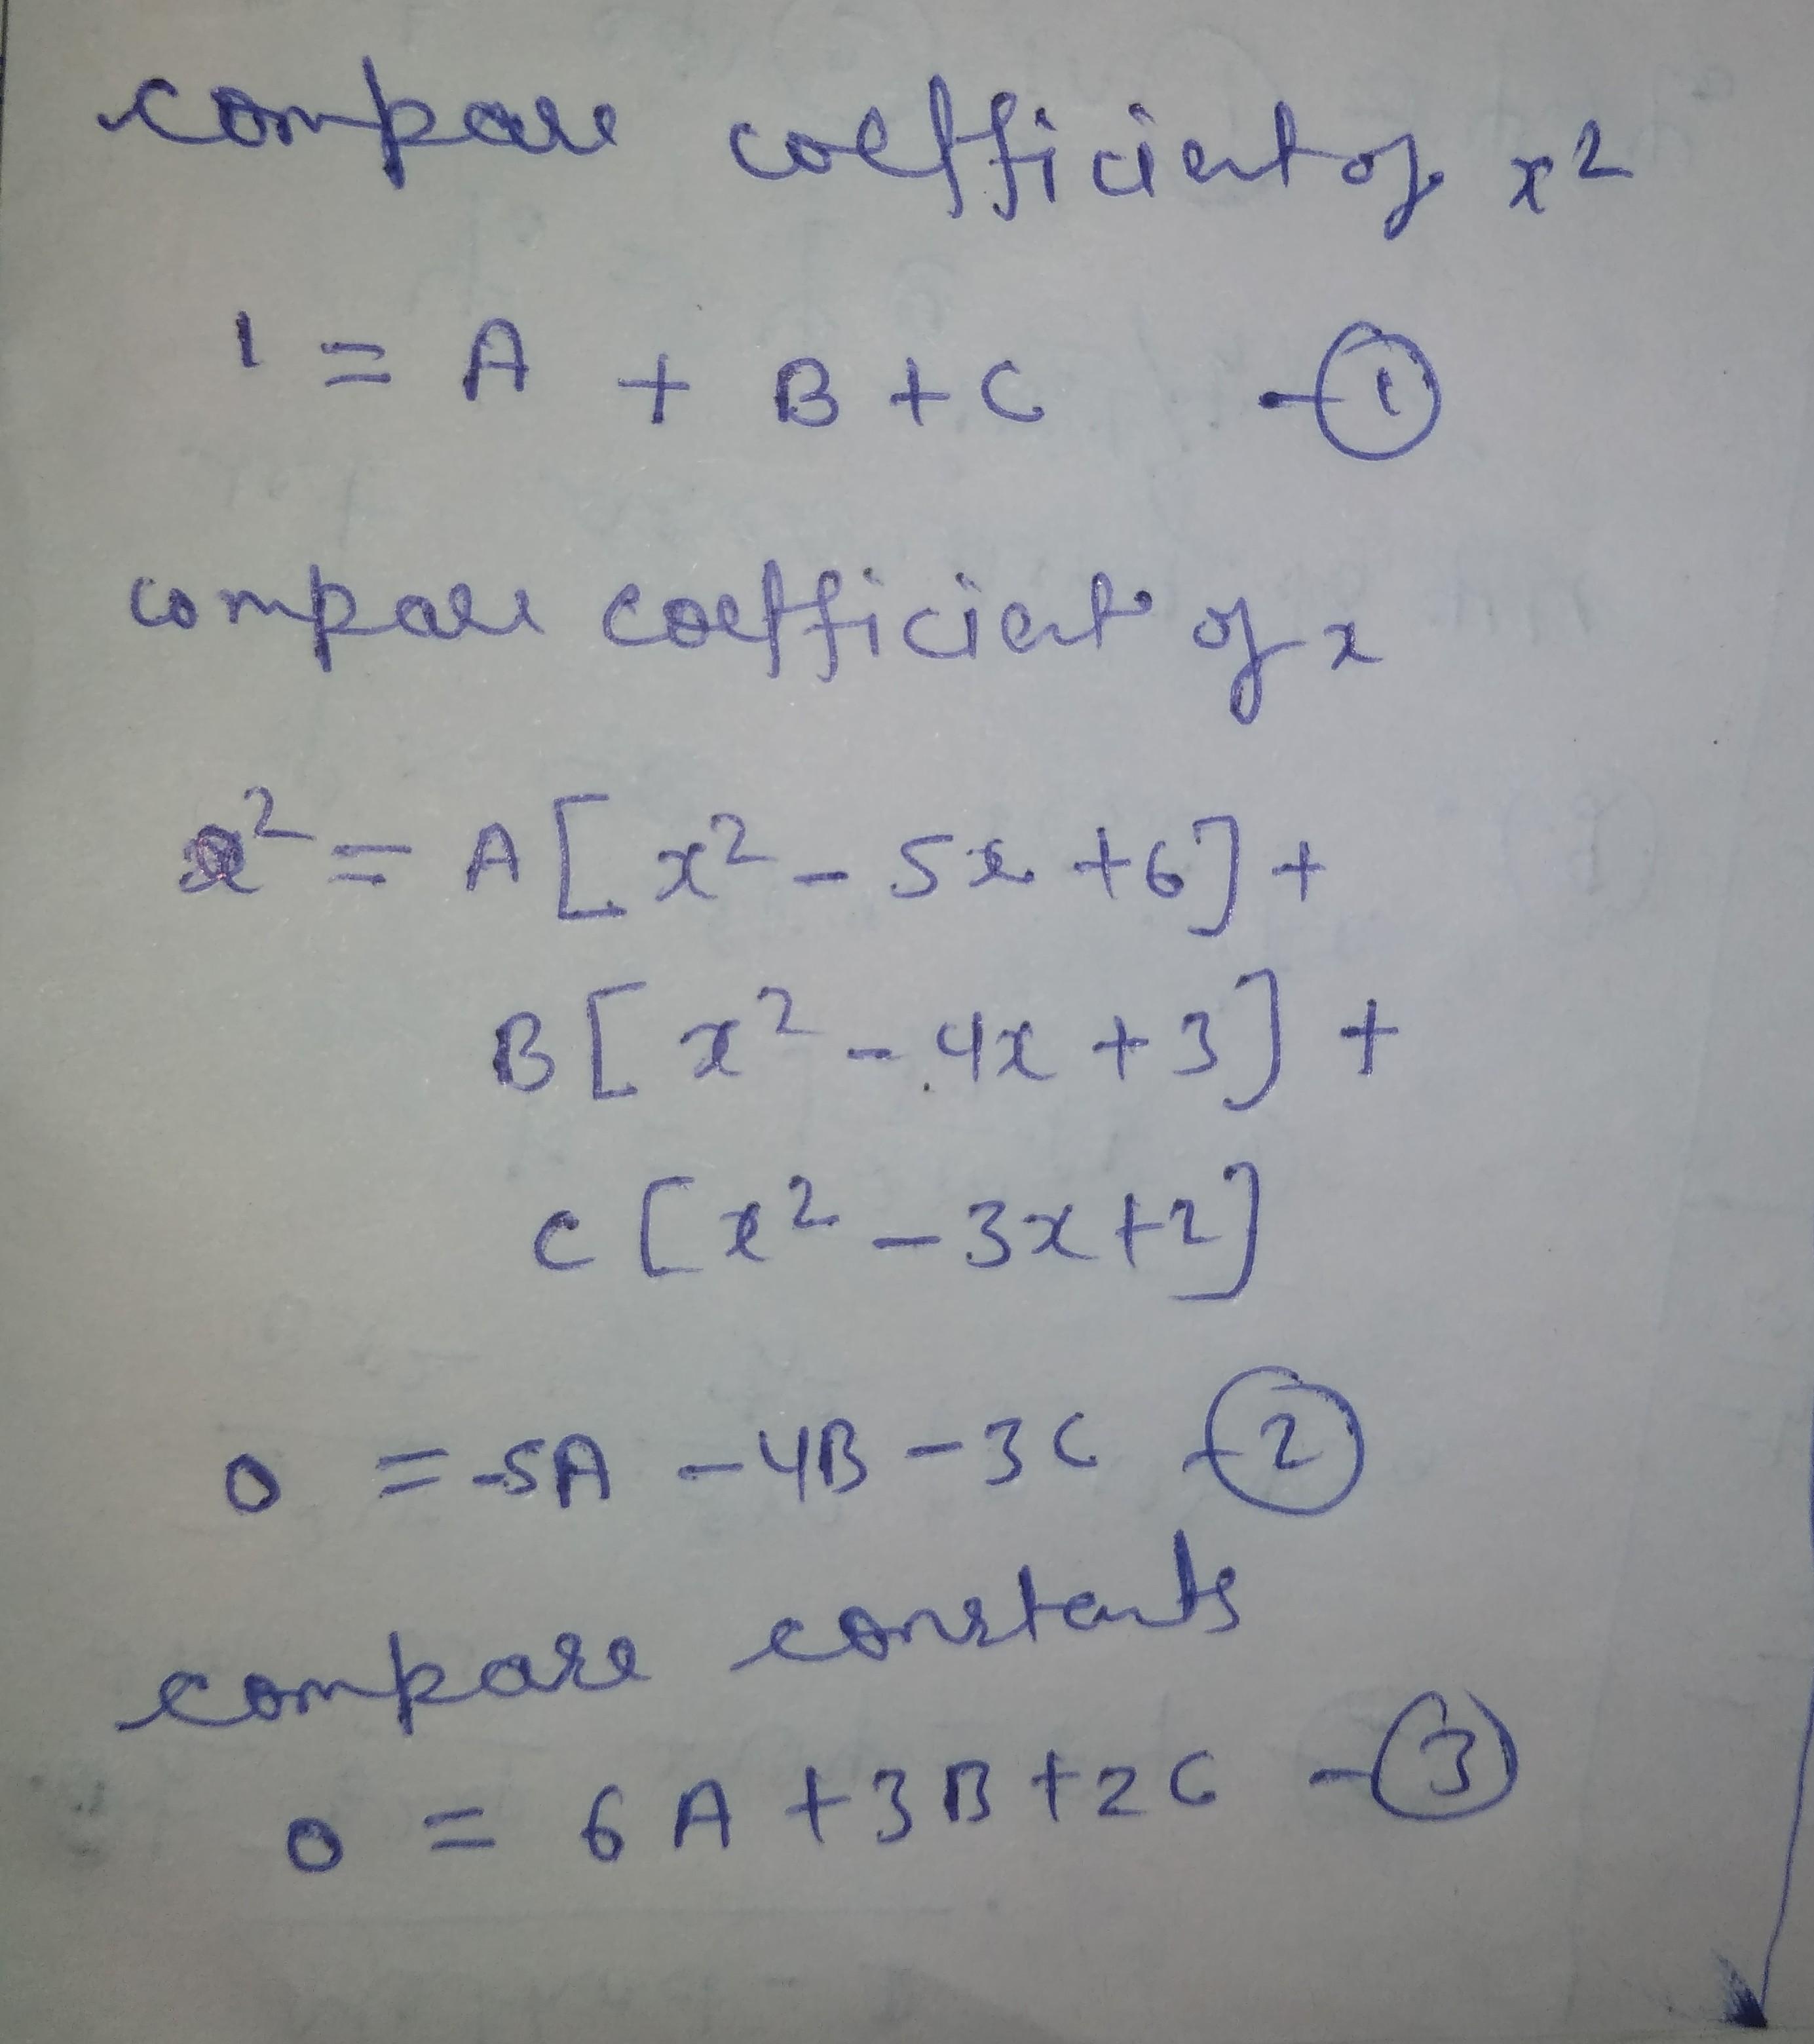 compare coefficient of x²
1 = A + B + C - ①
compare coefficient of x
x² = A[x² - 5x + 6] +
B[x² - 4x + 3] +
C[x² - 3x + 2]
0 = -5A - 4B - 3C - ②
compare constants
0 = 6A + 3B + 2C - ③